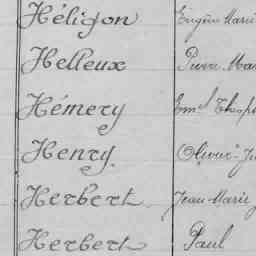 Héligon Eugène Marie
Helleux Pierre Mar
Hémery Em.el Théop
Henry Olivier-Je
Herbert Jean Marie
Herbert Paul